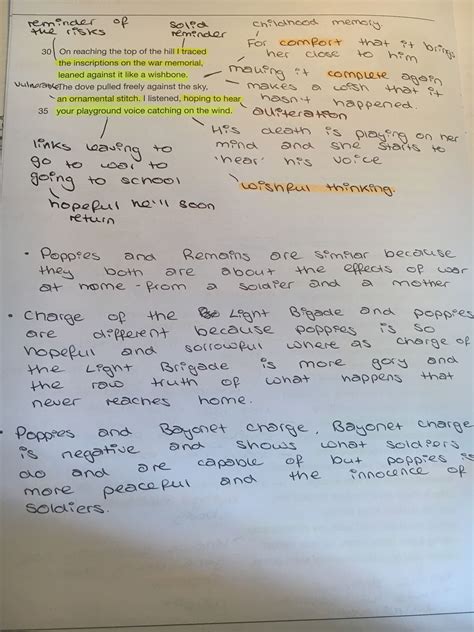 reminder of
the risks
solid
reminder
childhood memory.
For comfort that it brings
her close to him
30 On reaching the top of the hill I traced
the inscriptions on the war memorial,
leaned against it like a wishbone.
making it complete again
makes a wish that it
hasn't happened.
vulnerable The dove pulled freely against the sky,
an ornamental stitch. I listened, hoping to hear
35 your playground voice catching on the wind.
alliteration
His death is playing on her
mind and she starts to
'hear' his voice
links leaving to
go to war to
going to school
wishful thinking.
hopeful he'll soon
return
• Poppies and Remains are similar because
they both are about the effects of war
at home - from a soldier and a mother
• Charge of the Light Bigade and poppies
are different because poppies is so
hopeful and sorrowful where as charge of
the Light Brigade is more gory and
the raw truth of what happens that
never reaches home.
• Poppies and Bayonet charge, Bayonet charge
is negative and shows what soldiers
do and are capable of but poppies is
more peaceful and the innocence of
soldiers.